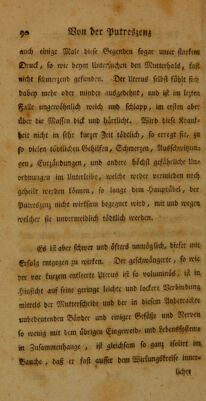 90 Von der Putreszenz
auch einige Male diese Gegenden sogar unter starkem
Druck, so wie beym Untersuchen des Mutterhals, fast
nicht schmerzend gefunden. Der Uterus selbst fühlt sich
dabey mehr oder minder ausgedehnt, und ist im letzten
Falle ungewöhnlich weich und schlapp, im ersten aber
über die Massen dick und härtlicht. Wird diese Krank-
heit nicht in sehr kurzer Zeit tödtlich, so erregt sie, zu
so vielen tödtlichen Gehilfen, Schmerzen, Ausschwitzun-
gen, Entzündungen, und andere höchst gefährliche Un-
ordnungen im Unterleibe, welche weder vermieden noch
geheilt werden können, so lange dem Hauptübel, der
Putreszenz nicht wirksam begegnet wird, mit und wegen
welcher sie unvermeidlich tödtlich werden.
Es ist aber schwer und öfters unmöglich, dieser mit
Erfolg entgegen zu wirken. Der geschwängerte, so wie
der vor kurzem entleerte Uterus ist so voluminös, ist in
Hinsicht auf seine geringe lockere und leichte Verbindung
mittels der Mutterscheide und der in diesem Anbetrachte
unbedeutenden Bänder und einiger Gefäße und Nerven
so wenig mit dem übrigen Eingeweid- und Lebenssystems
in Zusammenhange, ist gleichsam so ganz isolirt im
Bauche, daß er fast ausser dem Wirkungskreise inner-
licher